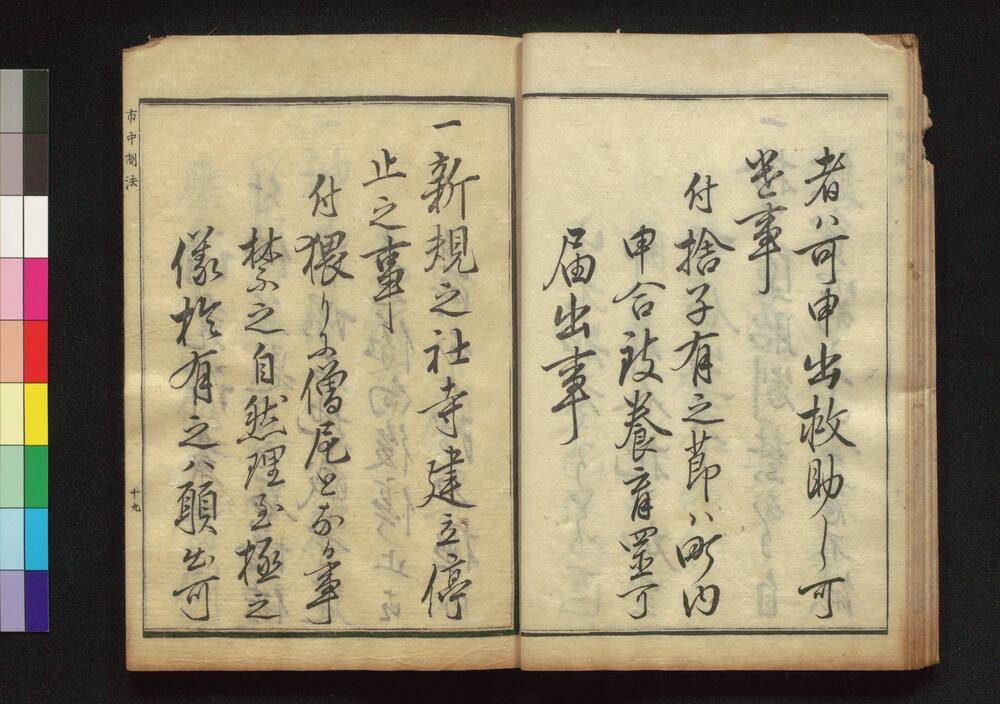 者ハ可申出救助し可
遣事
付捨子有之節ハ町内
申合致養育置可
届出事
一新規之社寺建立停
止之事
付猥りに僧尼となる事
禁之自然理至極之
儀於有之ハ願出可
市中制法
十九